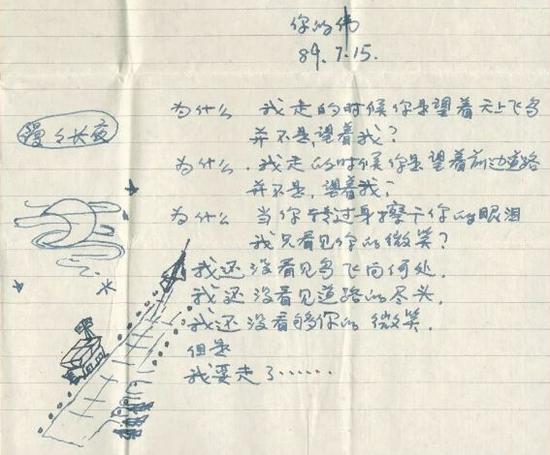 你的伟
89.7.15.
漫々长夜
为什么 我走的时候你是望着天上飞鸟
并不是,望着我?
为什么.我走的时候你是望着前边道路
并不是,望着我?
为什么 当你转过身擦干你的眼泪
我只看见你的微笑?
我还没看见鸟飞向何处.
我还没看见道路的尽头.
我还没看够你的微笑.
但是
我要走了……